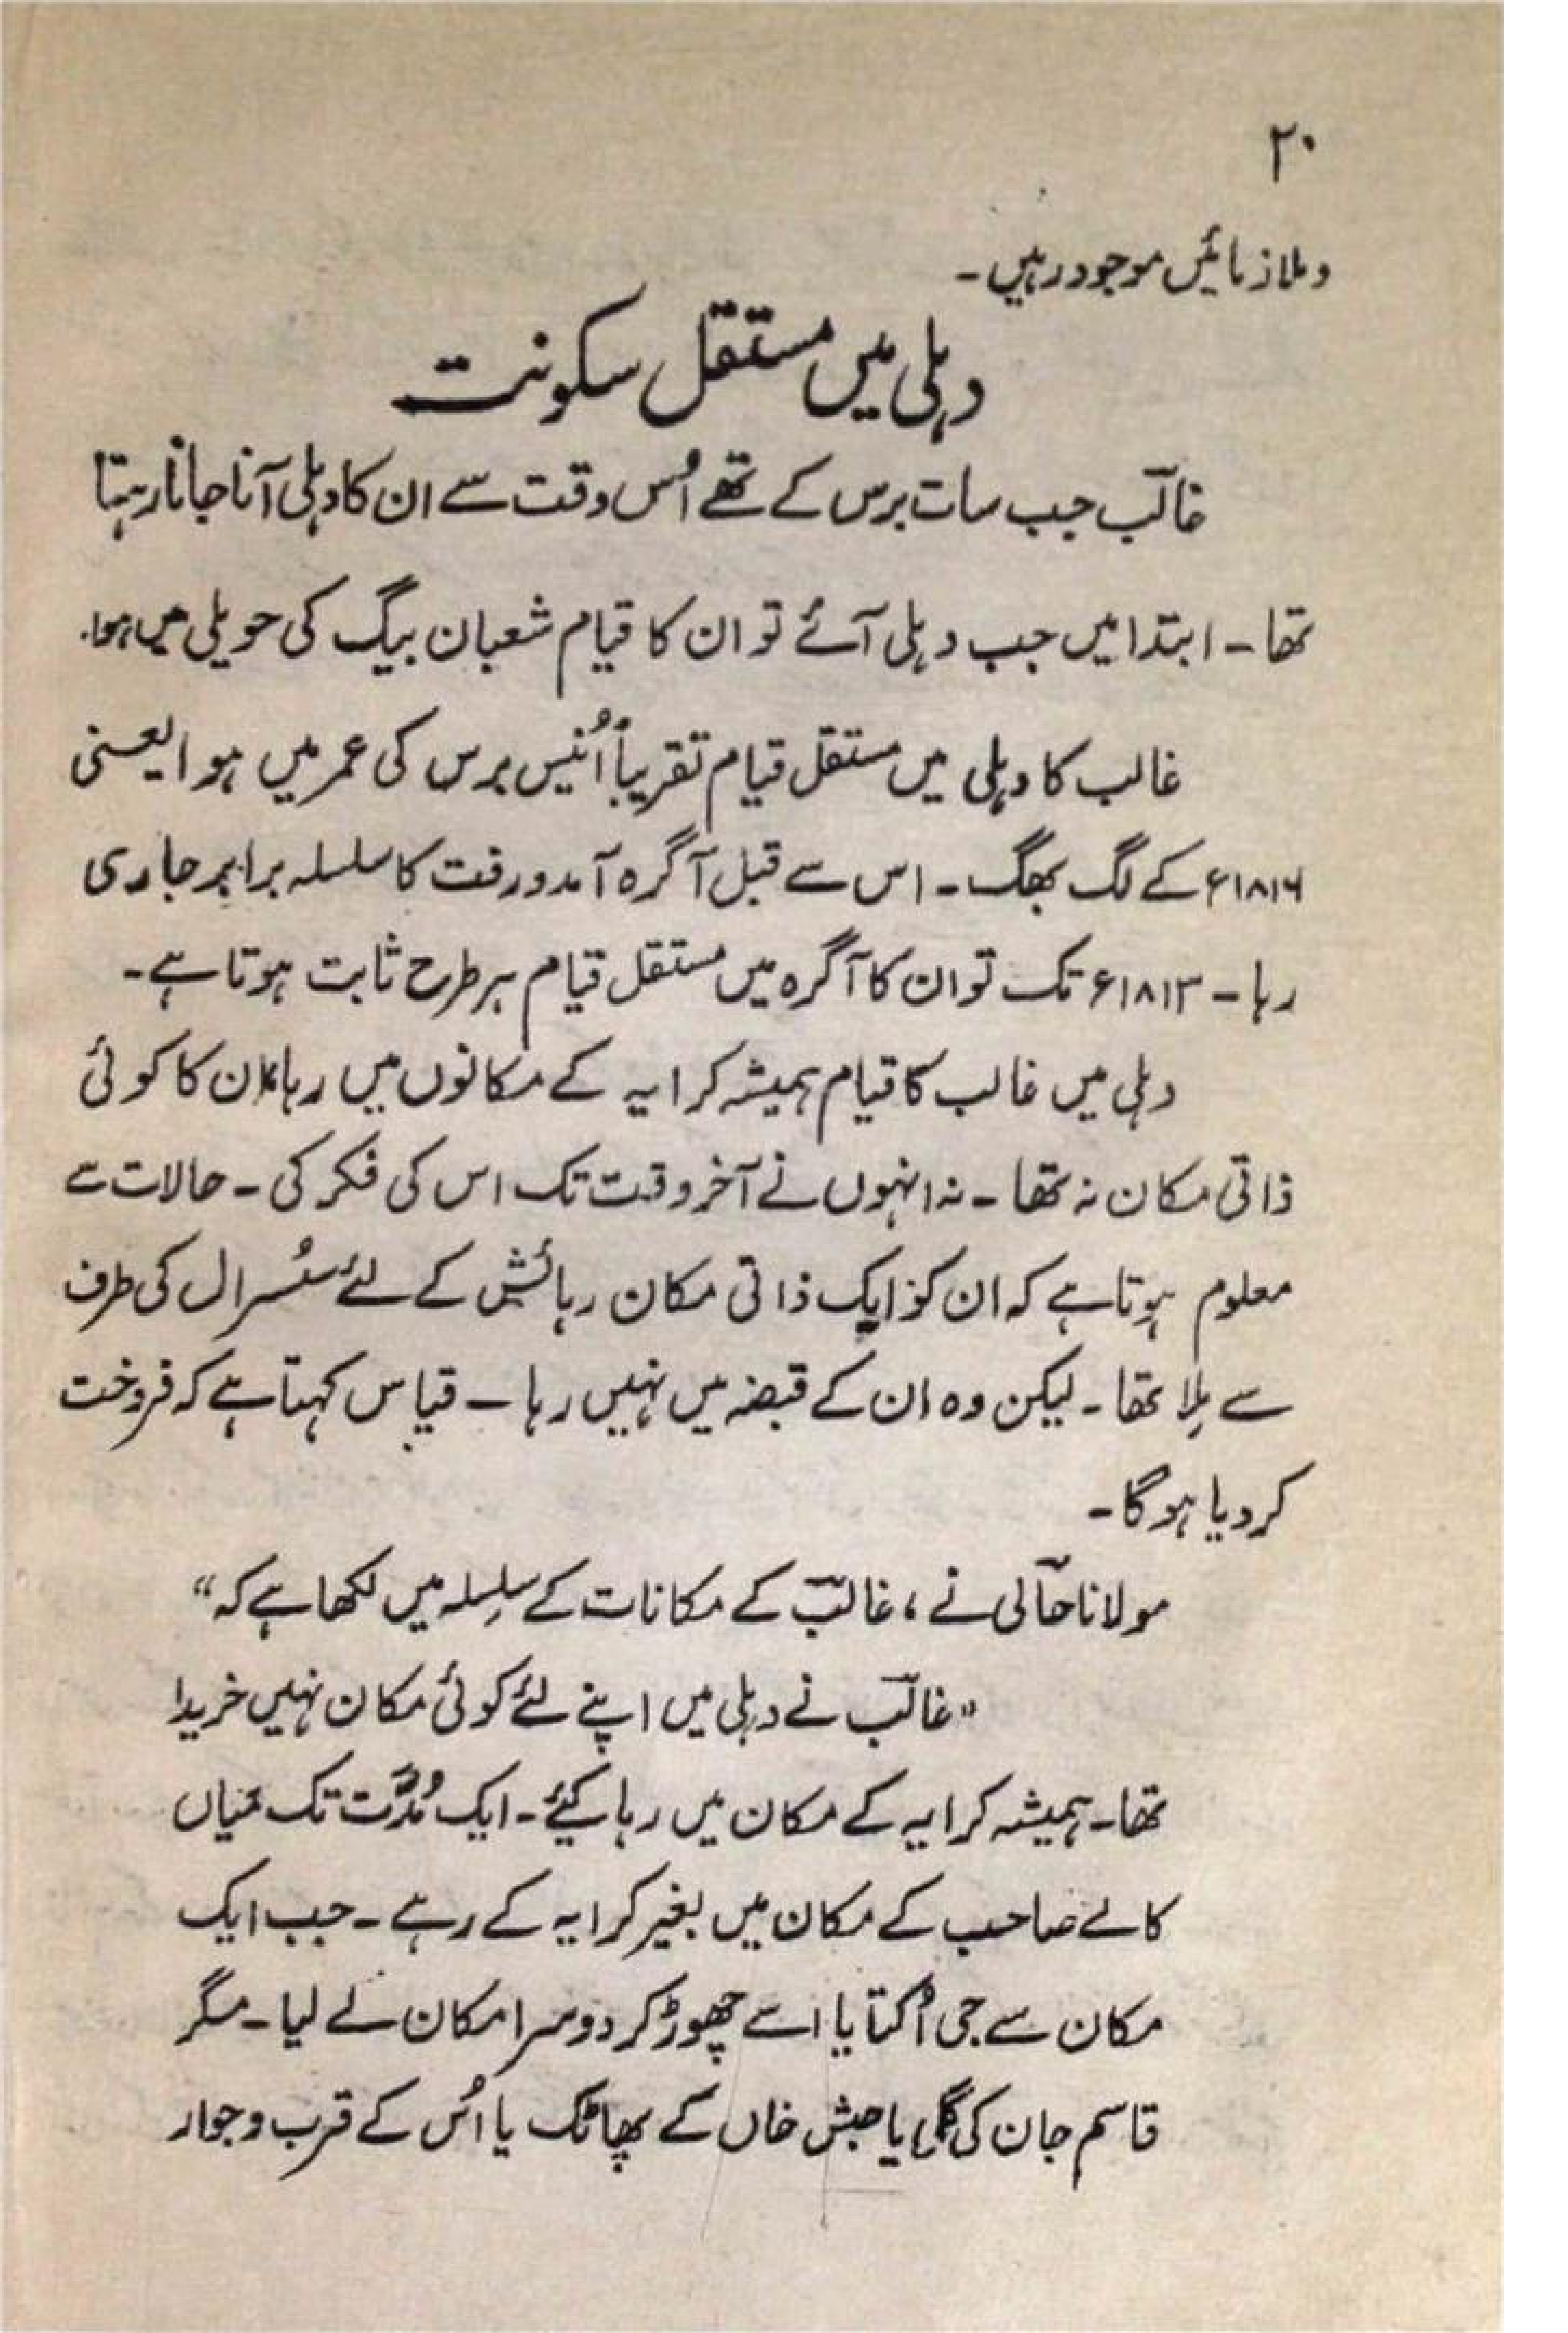 ۲۰
و ملازمائیں موجود رہیں۔
دہلی میں مستقل سکونت
غالبؔ جب سات برس کے تھے اُس وقت سے ان کا دہلی آنا جانا رہتا
تھا۔ ابتدا میں جب دہلی آئے تو ان کا قیام شعبان بیگ کی حویلی میں ہوا۔
غالب کا دہلی میں مستقل قیام تقریباً اُنیس برس کی عمر میں ہوا یعنی
۱۸۱۶ء کے لگ بھگ۔ اس سے قبل آگرہ آمد ورفت کا سلسلہ برابر جاری
رہا۔ ۱۸۱۳ء تک تو ان کا آگرہ میں مستقل قیام ہر طرح ثابت ہوتا ہے۔
دہلی میں غالب کا قیام ہمیشہ کرایہ کے مکانوں میں رہا۔ ان کا کوئی
ذاتی مکان نہ تھا۔ نہ انہوں نے آخر وقت تک اس کی فکر کی۔ حالات سے
معلوم ہوتا ہے کہ ان کو ایک ذاتی مکان رہائش کے لئے سُسرال کی طرف
سے مِلا تھا۔ لیکن وہ ان کے قبضہ میں نہیں رہا۔ قیاس کہتا ہے کہ فروخت
کر دیا ہوگا۔
مولانا حآلی نے، غالبؔ کے مکانات کے سلِسلہ میں لکھا ہے کہ“
”غالبؔ نے دہلی میں اپنے لئے کوئی مکان نہیں خریدا
تھا۔ ہمیشہ کرایہ کے مکان میں رہا کیئے۔ ایک مُدَّت تک میاں
کالے صاحب کے مکان میں بغیر کرایہ کے رہے۔ جب ایک
مکان سے جی اُکتایا اسے چھوڑ کر دوسرا مکان لے لیا۔ مگر
قاسم جان کی گلی یا حبش خاں کے پھاٹک یا اُس کے قرب وجوار